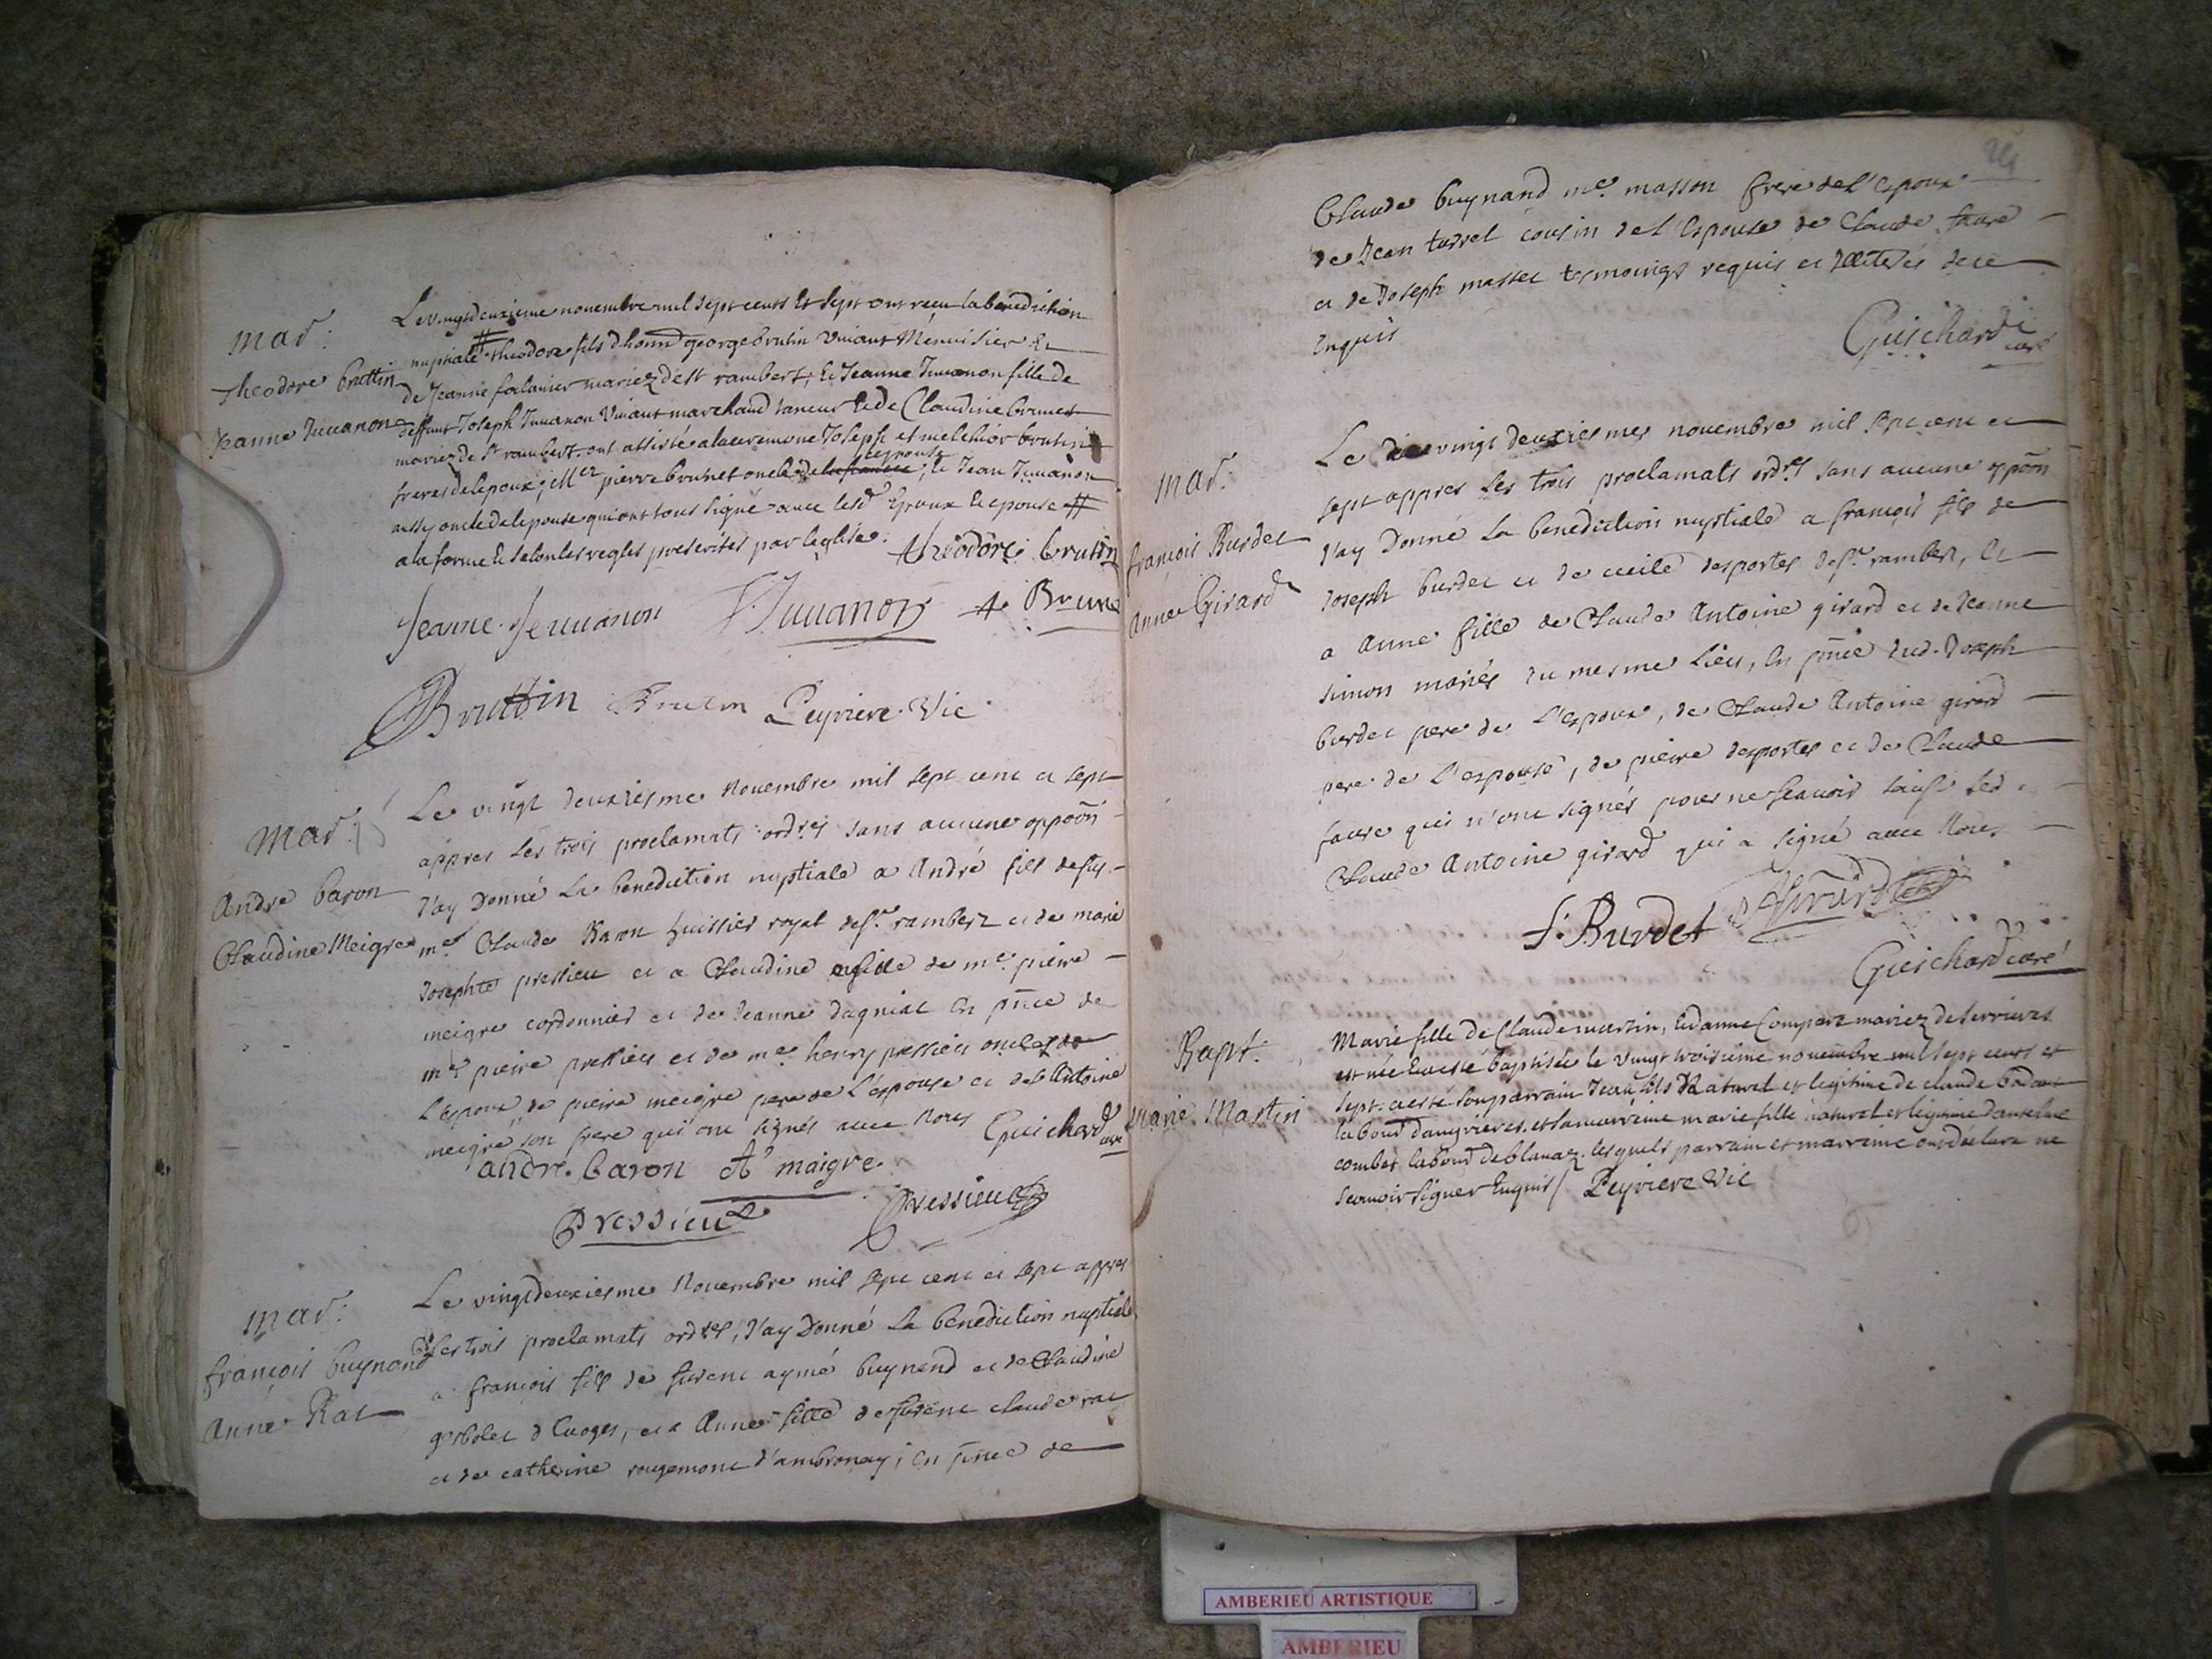 mar:
Theodore bruttin
Jeanne Juuanon
Le vingtdeuxieme nouembre mil sept cents et sept ont receu la benediction
nuptiale # theodore fils d'honn george brutin viuant Menuisier et
de Jeanne mariez de st rambert, et Jeanne Juuanon fille de
deffunt Joseph Juuanon viuant marchand taneur et de Claudine brunet
mariez de st rambert. ont assisté a la ceremonie Joseph et melchior brutin
freres de lepoux; Mer pierre brunet oncle de lespouse; et Jean Juuanon
aussy oncle de lepouse qui ont tous signé auec lesd Epoux et epouse #
a la forme et selon les regles prescrites par leglise. theodore brutin
Jeanne Jeuuanon Juuanon Brune
Bruttin Brutin Peyriere Vic
mar:
Andre baron
Claudine Meigre
Le vingt deuxiesme Nouembre mil sept cent et sept
appres les trois proclamats ordres sans aucune oppoon
J'ay Donné La benediction nuptiale a André fils de fus
me Claude Baron huissier royal de st rambert et de marie
Josephte pressieu et a Claudine fille de me pierre
meigre cordonnier et de Jeanne dagniat En pnce de
me pierre pressieu et de me henry pressieu oncles de
L'espoux de pierre meigre pere de L'espouse et de Antoine
meigre son frere qui ont signés auec Nous Guichard curé
andre. baron A maigre.
Pressieu Pressieu
mar:
françois buynand
Anne Rat
Le vingtdeuxiesme Nouembre mil sept cent et sept appres
Les trois proclamats ordres, J'ay Donné La benediction nuptiale
a françois fils de furent aymé buynand et de Claudine
d'Euoges, et a Anne fille de furent claude rat
et de catherine rougemont d'ambronay; En pnce de
Claude buynand me masson frere de l'Espoux
de Jean tarrel cousin de l'Espouse de Claude faure
et de Joseph masset tesmoings requis et Illiterés de ce
Enquis
Guichard curé
mar:
françois Burdet
Anne Girard
Le vingt deuxiesme nouembre mil sept cent et
sept appres Les trois proclamats ordres sans aucune oppoon
J'ay Donné La benediction nuptiale a françois fils de
Joseph burdet et de cecile desportes de st rambert, et
a Anne fille de Claude Antoine girard et de Jeanne
simon mariés du mesme Lieu, En pnce dud. Joseph
burdet pere de L'espoux, de Claude Antoine girard
pere de L'espouse, de pierre desportes et de Claude
faure qui n'ont signés pour ne scauoir sauf Led.
Claude Antoine girard qui a signé auec Nous
f. Burdet Girard
Guichard curé
Bapt:
Marie Martin
Marie fille de Claude martin, et d'anne Compare mariez de serrieres
est née et a esté baptisée le vingt troisieme nouembre mil sept cents et
sept. a esté son parrain Jean fils Naturel et legitime de claude
labour d'angrieres. et sa marreine marie fille naturel et legitime d'anselme
combet labour de blanaz. lesquels parrain et marreine ont declaré ne
scauoir signer Enquis / Peyriere Vic
AMBERIEU ARTISTIQUE
AMBERIEU